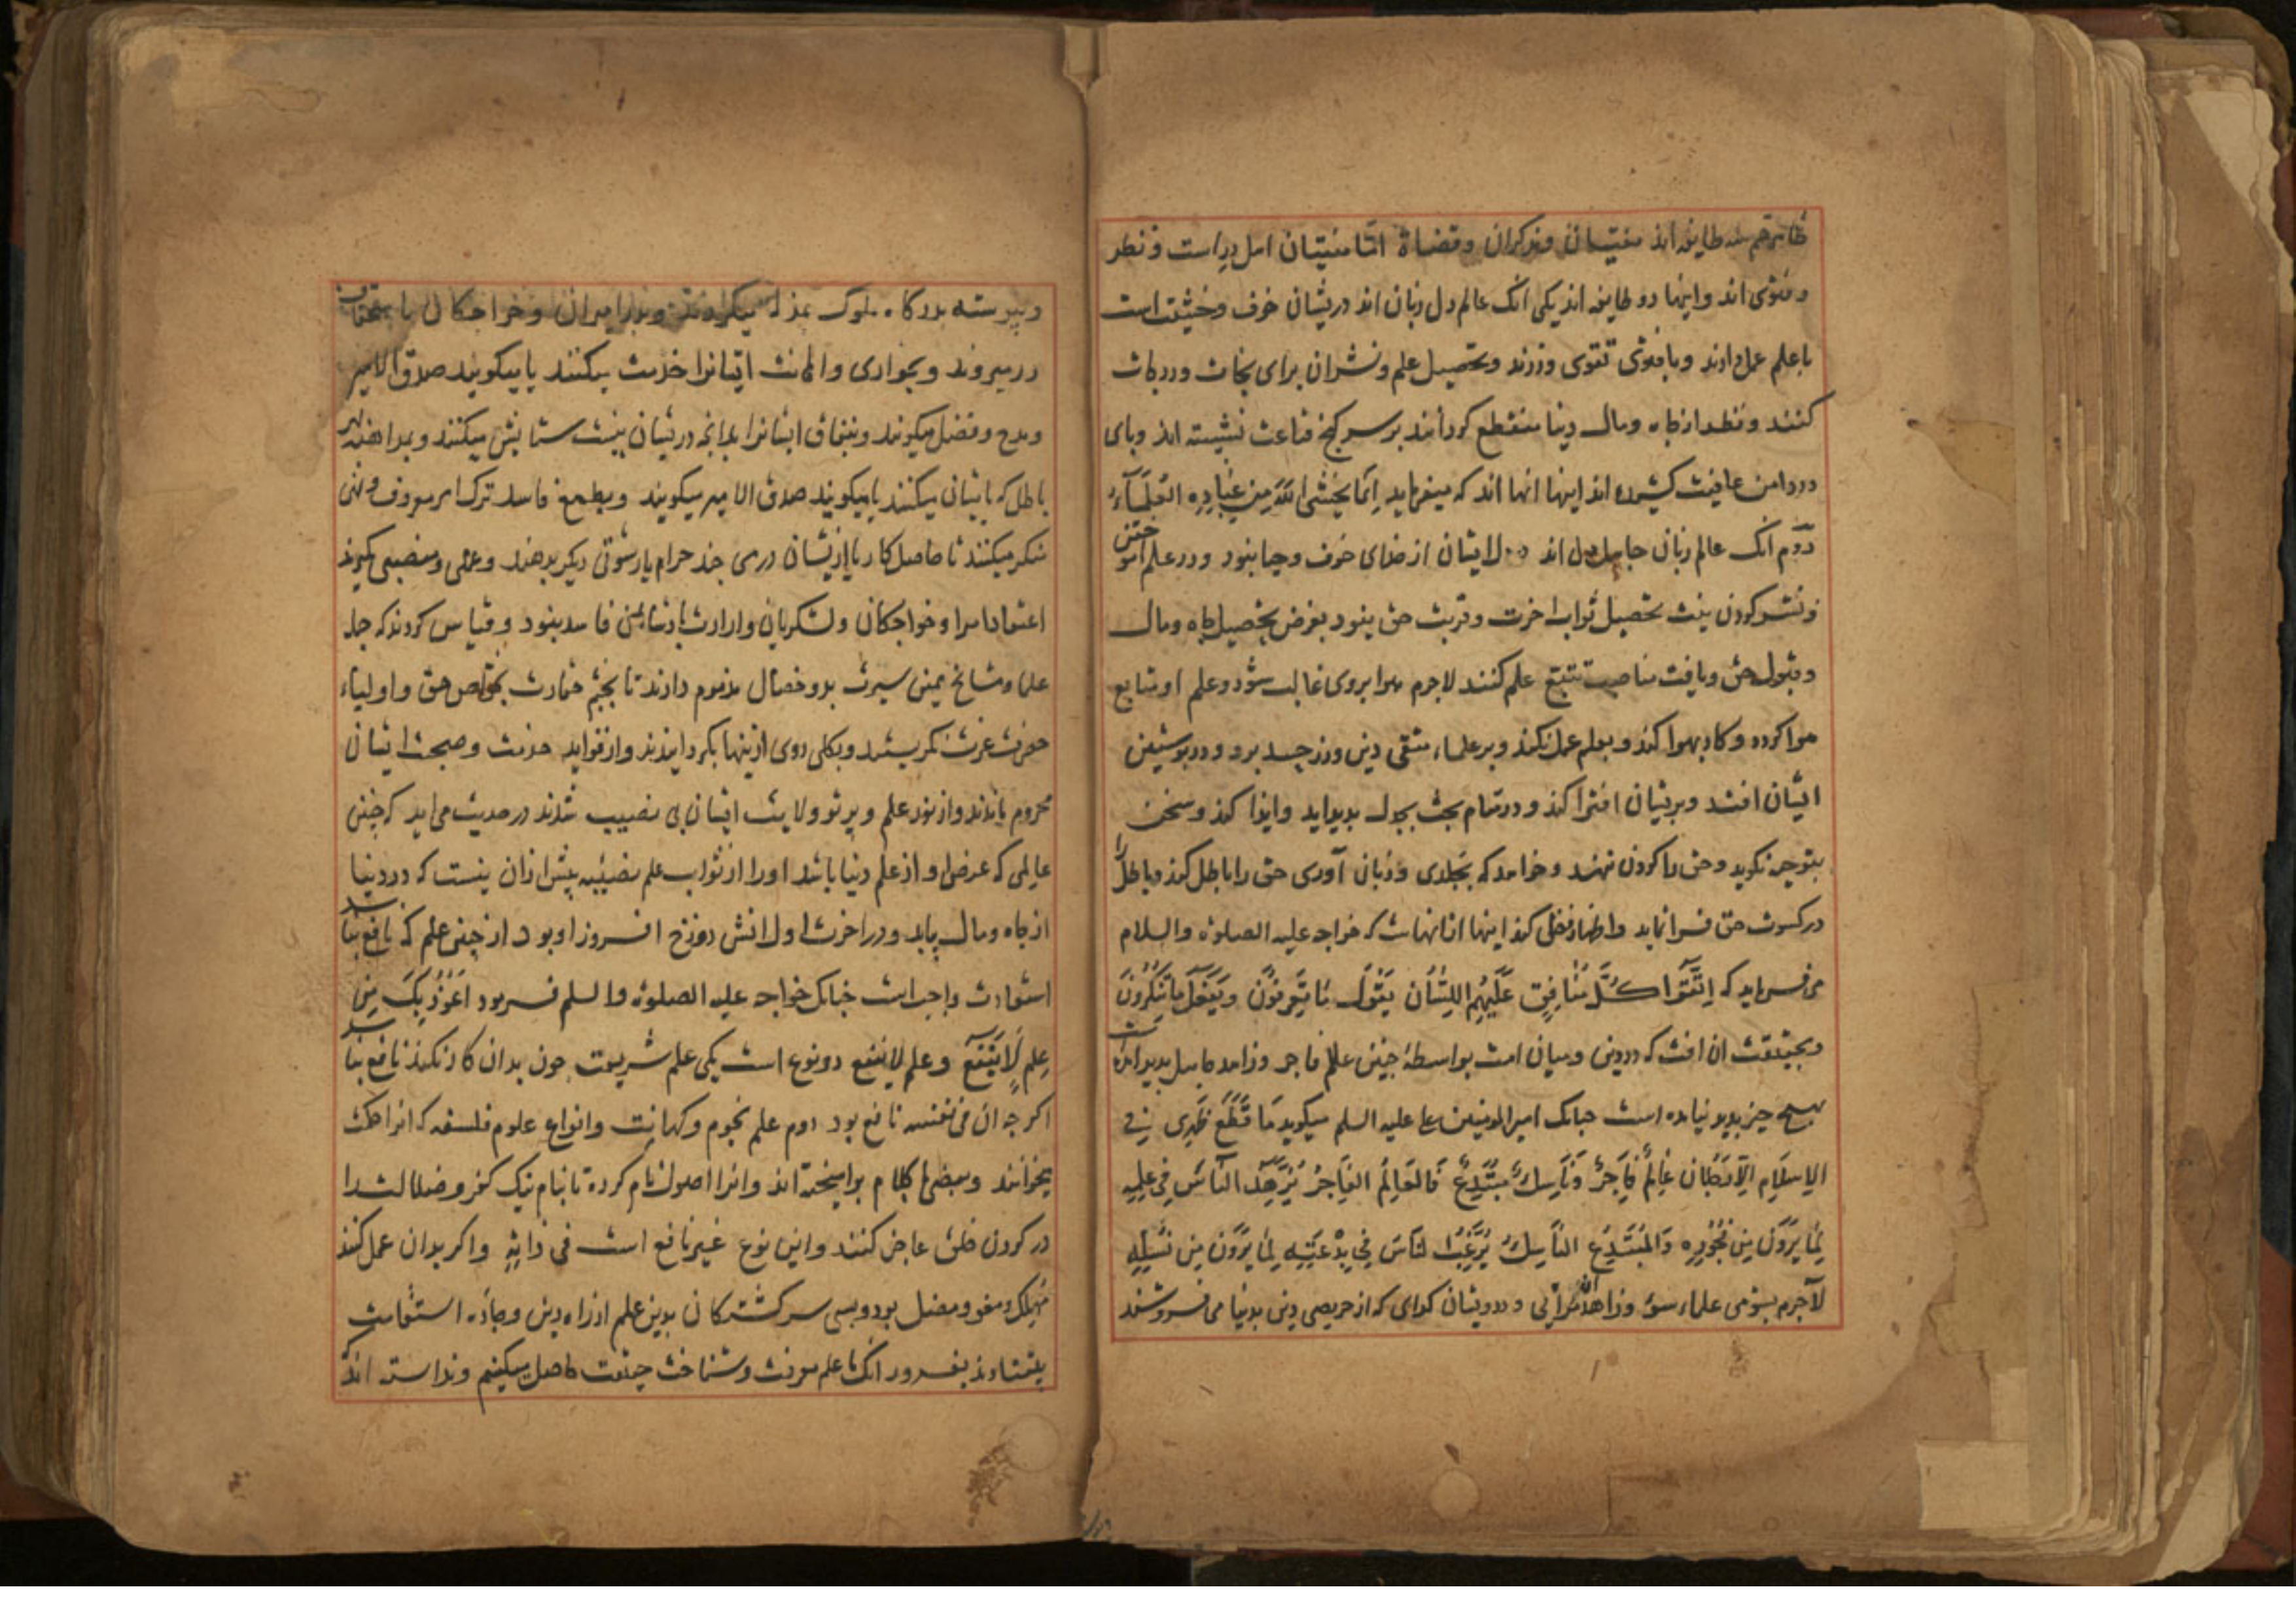 ظاهر هم سه طایفه اند مفتیان ومذکران وقضاة اما مفتیان اهل دراست ونظر
وفتوی اند واینها دو طایفه اند یکی انک عالم دل وزبان اند دریشان خوف وخشیت است
باعلم عمل دارند وبا فتوی تقوی ورزند وتحصیل علم ونشران برای نجات ودرجات
کنند ونظر از جاه ومال دنیا منقطع کردانند بر سر کنج قناعت نشسته اند وپای
در دامن عافیت کشیده اند اینها انها اند که میفرماید اِنَّمَا یَخْشَی اللّٰهَ مِنْ عِبَادِهِ الْعُلَمَآءُ
دوّم انک عالم زبان جاهل دل اند در دل ایشان از خدای خوف وحیا نبود ودر علم اموختن
ونشر کردن نیت تحصیل ثواب اخرت وقربت حق نبود بغرض تحصیل جاه ومال
وقبول خلق ویافت مناصب تتبع علم کنند لاجرم هوا بروی غالب شود وعلم او متابع
هوا کردد وکار بهوا کند وبعلم عمل نکند وبر علماء متقی دین ورز حسد برد ودر پوستین
ایشان افتد وبریشان افترا کند ودر مقام بحث بجدل پدید اید وایذا کند وسخن
بتوجیه نکوید وحق را کردن ننهد وخواهد که بجلدی وزبان آوری حق را باطل کند وباطل را
در کسوت حق فرا نماید واظهار فضل کند اینها ازانهاست که خواجه علیه الصلوة والسلام
می فرماید که اِتَّقُوا کُلَّ مُنَافِقٍ عَلِیْمِ اللِّسَانِ یَقُولُ مَا تَعْرِفُوْنَ وَیَفْعَلُ مَا تُنْکِرُوْنَ
وبحقیقت ان افت که در دین ومیان امت بواسطهٔ چنین عالم فاجر وزاهد جاهل پدید امدست
بهیچ چیز پدید نیامده است چنانک امیر المومنین علی علیه السلم میکوید مَا قَطَعَ ظَهْرِی فِی
الاِسْلَامِ اِلَّا رَجُلَان عَالِمٌ فَاجِرٌ وَنَاسِکٌ مُبْتَدِعٌ فَالعَالِمُ الفَاجِرُ یُزَهِّدُ النَّاسَ فِی عِلْمِهِ
لِمَا یَرَوْنَ مِنْ فُجُوْرِهِ وَالْمُبْتَدِعُ النَّاسِکُ یُرَغِّبُ النَّاسَ فِی بِدْعَتِهِ لِمَا یَرَوْنَ مِنْ نُسُکِهِ
لاجرم بشومی علماء سوء وزاهدان مرائی ودرویشان کدای که از حریصی دین بدنیا می فروشند
وپیوسته بدرکاه ملوک میکردند وبدر امیران وخواجکان
در میروند وبخواری واهانت ایشانرا خدمت میکنند یا میکویند صدق الامیر
ومدح وفضل میکویند وبنفاق ایشانرا بدانچه دریشان نیست ستایش میکنند وبمداهنه بهر
باطل که ایشان میکنند یا میکویند صدق الامیر میکویند وبطمع فاسد ترک امر معروف ونهی
منکر میکنند تا حاصل کار یا ازیشان درمی چند حرام یا رشوتی دیکر بدهند وعملی ومنصبی کیرند
اعتقاد امرا وخواجکان ولشکریان وارادت پادشاه فاسد بنود وقیاس کردند که جمله
علما ومشایخ همین سیرت بد وخصال مذموم دارند تا بچشم حقارت بخواص حق واولیاء
حضرت عزت نکریستند وبکلی روی ازینها بکردانیدند واز فواید خدمت وصحبت ایشان
محروم ماندند واز نور علم وپرتو ولایت ایشان بی نصیب شدند در حدیث می اید که چنین
عالمی که غرض او از علم دنیا باشد اورا از ثواب علم نصیبه بیش ازان نیست که در دنیا
از جاه ومال بیابد ودر اخرت اول اتش دوزخ افروز او بود از چنین علم که نافع نباشد
استعاذت واجبست چنانک خواجه علیه الصلوة والسلم فرمود اَعُوْذُ بِکَ مِنْ
عِلْمٍ لَا یَنْفَعُ وعلم لاینفع دو نوع است یکی علم شریعت چون بدان کار نکنند نافع نباشد
اکرچه ان فی نفسه نافع بود دوم علم نجوم وکهانت وانواع علوم فلسفه که انرا حکمت
میخوانند وبعضی با کلام برامیخته اند وانرا اصول نام کرده تا بنام نیک کفر وضلالت را
در کردن خلق عاجز کنند واین نوع غیر نافع است فی ذاتِهِ واکر بدان عمل کنند
مهلک ومغوی ومضل بود وبسی سرکشتکان بدین علم از راه دین وجادّه استقامت
بیفتادند بغرور انک ما علم معرفت وشناخت حقیقت حاصل میکنیم وندانسته اند که